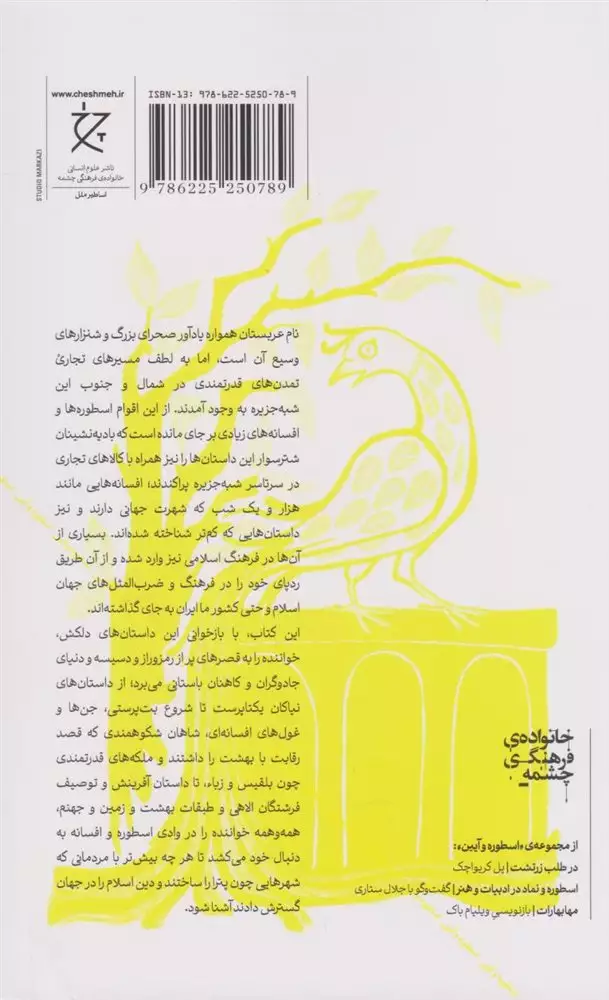 www.cheshmeh.ir
ناشر علوم انسانی
خانواده‌ی فرهنگی چشمه
اساطیر ملل
STUDIO MARKAZI
ISBN-13: 978-622-5250-78-9
9 786225 250789
نام عربستان همواره یادآور صحرای بزرگ و شنزارهای
وسیع آن است، اما به لطف مسیرهای تجاری
تمدن‌های قدرتمندی در شمال و جنوب این
شبه‌جزیره به وجود آمدند. از این اقوام اسطوره‌ها و
افسانه‌های زیادی بر جای مانده است که بادیه‌نشینان
شترسوار این داستان‌ها را نیز همراه با کالاهای تجاری
در سرتاسر شبه‌جزیره پراکندند؛ افسانه‌هایی مانند
هزار و یک شب که شهرت جهانی دارند و نیز
داستان‌هایی که کم‌تر شناخته شده‌اند. بسیاری از
آن‌ها در فرهنگ اسلامی نیز وارد شده و از آن طریق
ردپای خود را در فرهنگ و ضرب‌المثل‌های جهان
اسلام و حتی کشور ما ایران به جای گذاشته‌اند.
این کتاب، با بازخوانی این داستان‌های دلکش،
خواننده را به قصرهای پر از رمزوراز و دسیسه و دنیای
جادوگران و کاهنان باستانی می‌برد؛ از داستان‌های
نیاکان یکتاپرست تا شروع بت‌پرستی، جن‌ها و
غول‌های افسانه‌ای، شاهان شکوهمندی که قصد
رقابت با بهشت را داشتند و ملکه‌های قدرتمندی
چون بلقیس و زباء، تا داستان آفرینش و توصیف
فرشتگان الاهی و طبقات بهشت و زمین و جهنم،
همه‌وهمه خواننده را در وادی اسطوره و افسانه به
دنبال خود می‌کشد تا هر چه بیش‌تر با مردمانی که
شهرهایی چون پترا را ساختند و دین اسلام را در جهان
گسترش دادند آشنا شود.
خانواده‌ی
فرهنگی
چشمه
از مجموعه‌ی «اسطوره و آیین»:
در طلب زرتشت | پل کریواچک
اسطوره و نماد در ادبیات و هنر | گفت‌وگو با جلال ستاری
مهابهارات | بازنویسی ویلیام باک